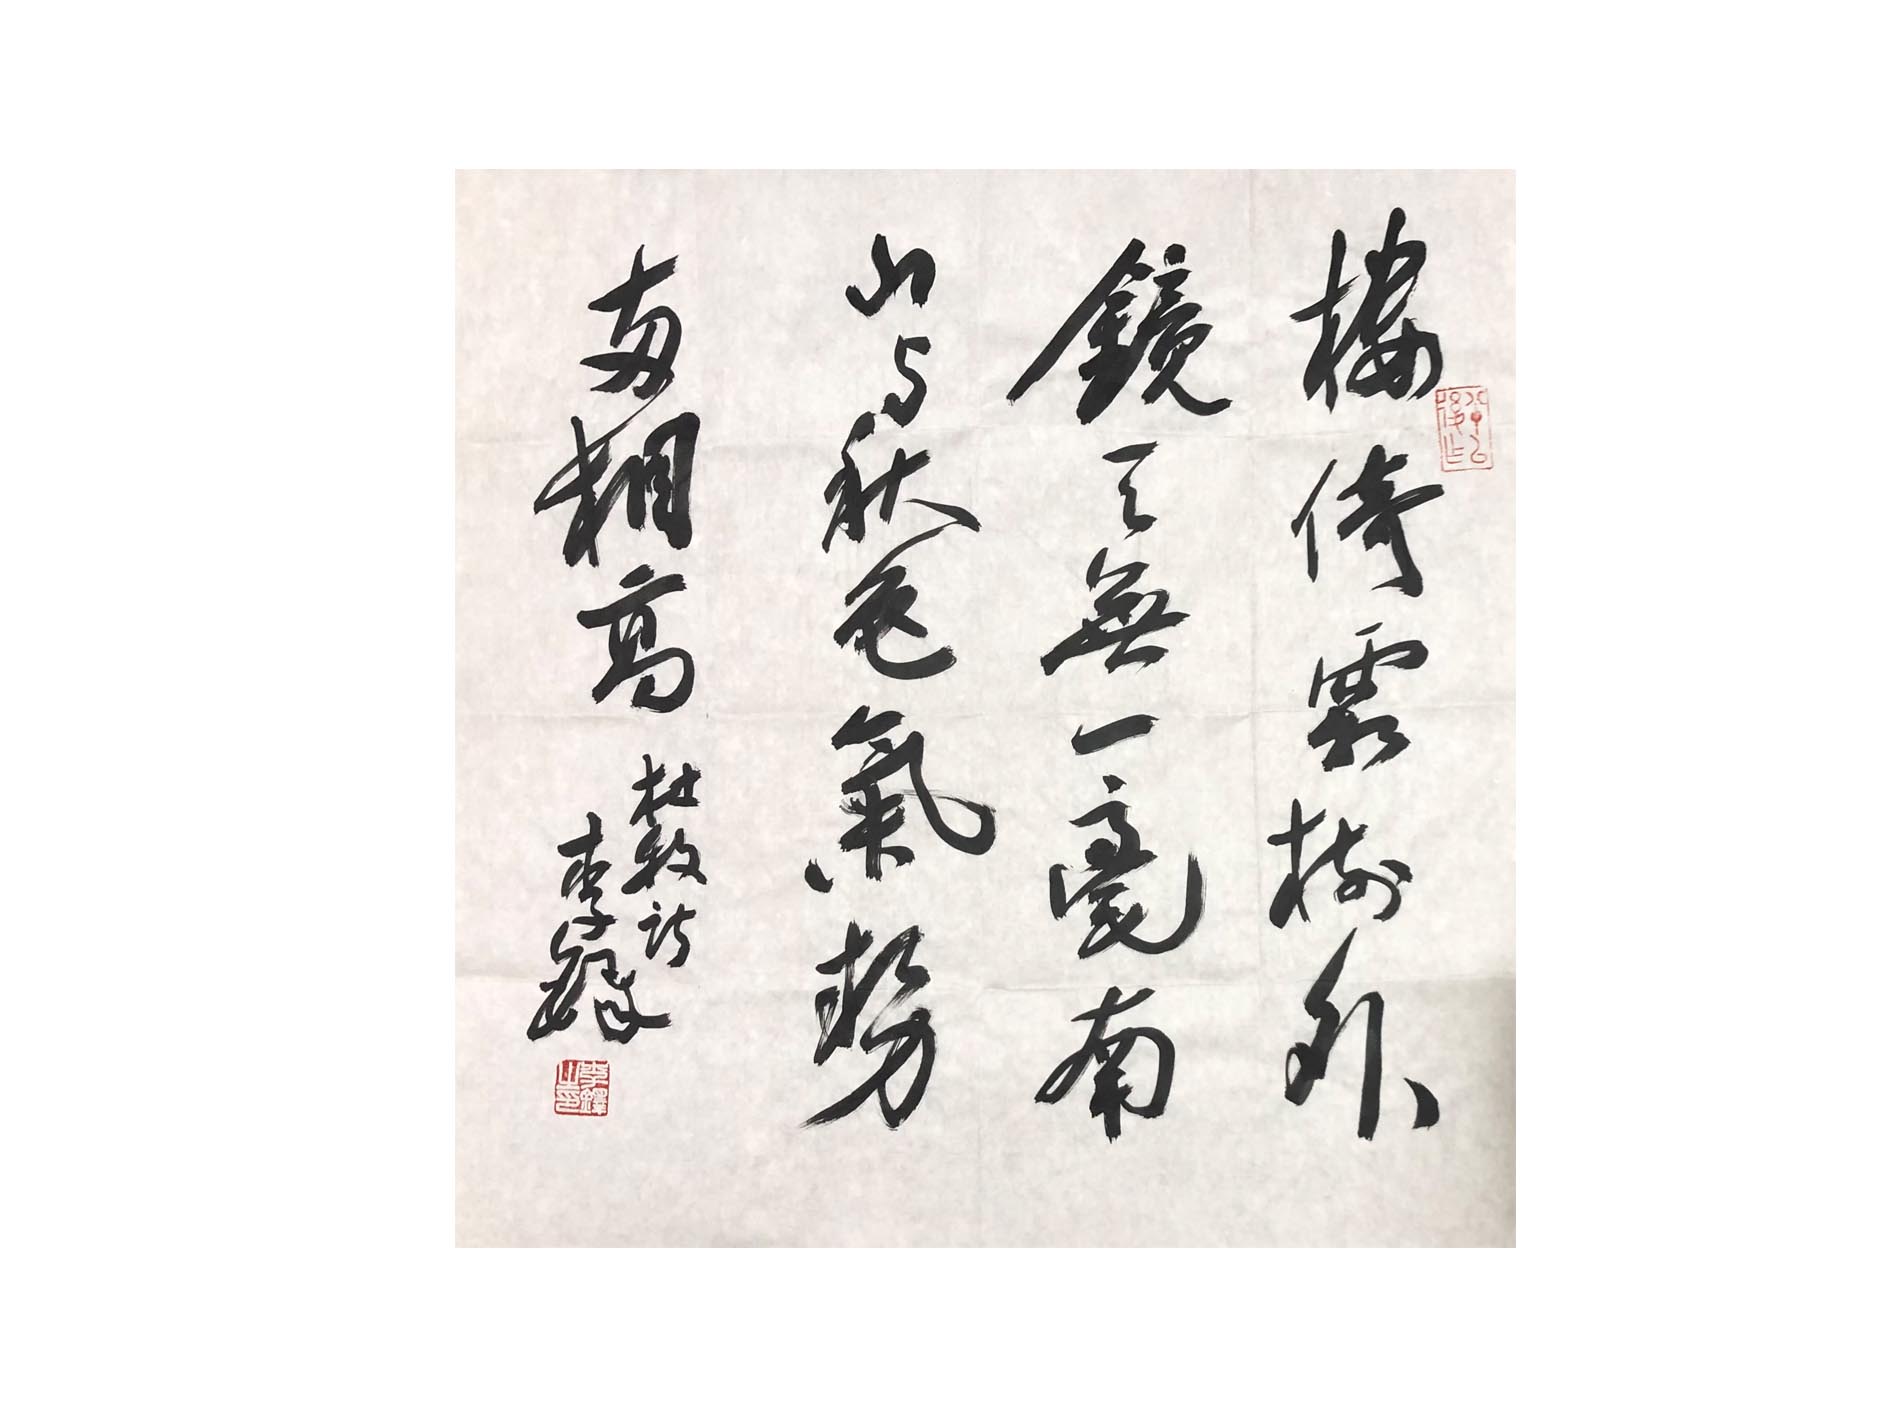 樓倚霜樹外
鏡天無一毫南
山与秋色氣勢
两相高
杜牧詩
李鐸
李鐸之印